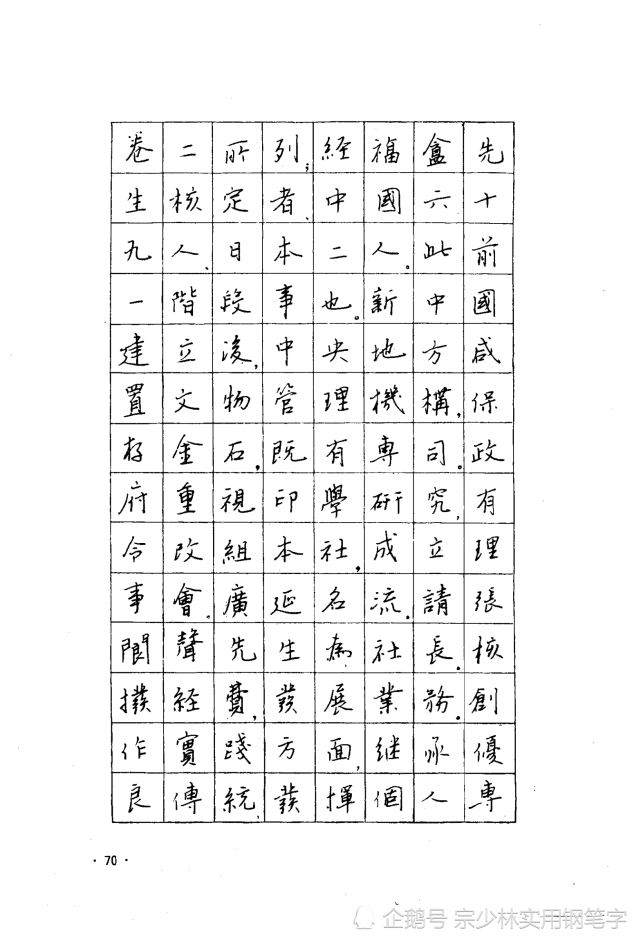 卷二所列;经福盦先
生核定者、中國六十
九人、日本二人。此前
一階段事也。新中國
建立後,中央地方咸
置文物管理機構,保
存金石,既有專司。政
府重視印學研究,有
令改組本社,成立理
事會、廣延名流。請張
閬聲先生為社長。核
撥経費,發展業務。創
作實踐方面,继承優
良傳統,發揮個人專
· 70 ·
企鹅号 宗少林实用钢笔字